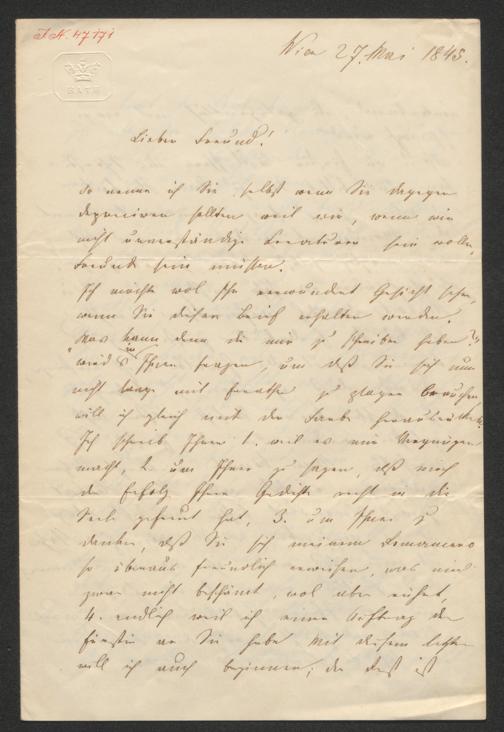 J.N. 47171
BATH
Wien 27. Mai 1845.
Lieber Freund!
So nenne ich Sie, selbst wenn Sie dagegen
depreciren sollten weil wir, wenn wir
nicht unverständige Creaturen sein wollen,
Freunde sein müssen.
Ich möchte wol Ihr verwundert Gesicht sehen,
wenn Sie diesen Brief erhalten werden.
"Was kann denn die mir zu schreiben haben?"
wird's in Ihnen fragen, um daß Sie sich nun
nicht lange mit Errathen zu plagen brauchen,
will ich gleich mit der Farbe herausrücken.
Ich schreib Ihnen 1. weil es mir Vergnügen
macht, 2. um Ihnen zu sagen, daß mich
der Erfolg Ihrer Gedichte recht in die
Seele gefreut hat, 3. um Ihnen zu
danken, daß Sie sich meinem Romancero
so überaus freundlich erweisen, was mich
zwar nicht beschämt, wol aber rührt,
4. endlich weil ich einen Auftrag der
Fürstin an Sie habe. Mit diesem letzten
will ich auch beginnen; der Dest ist